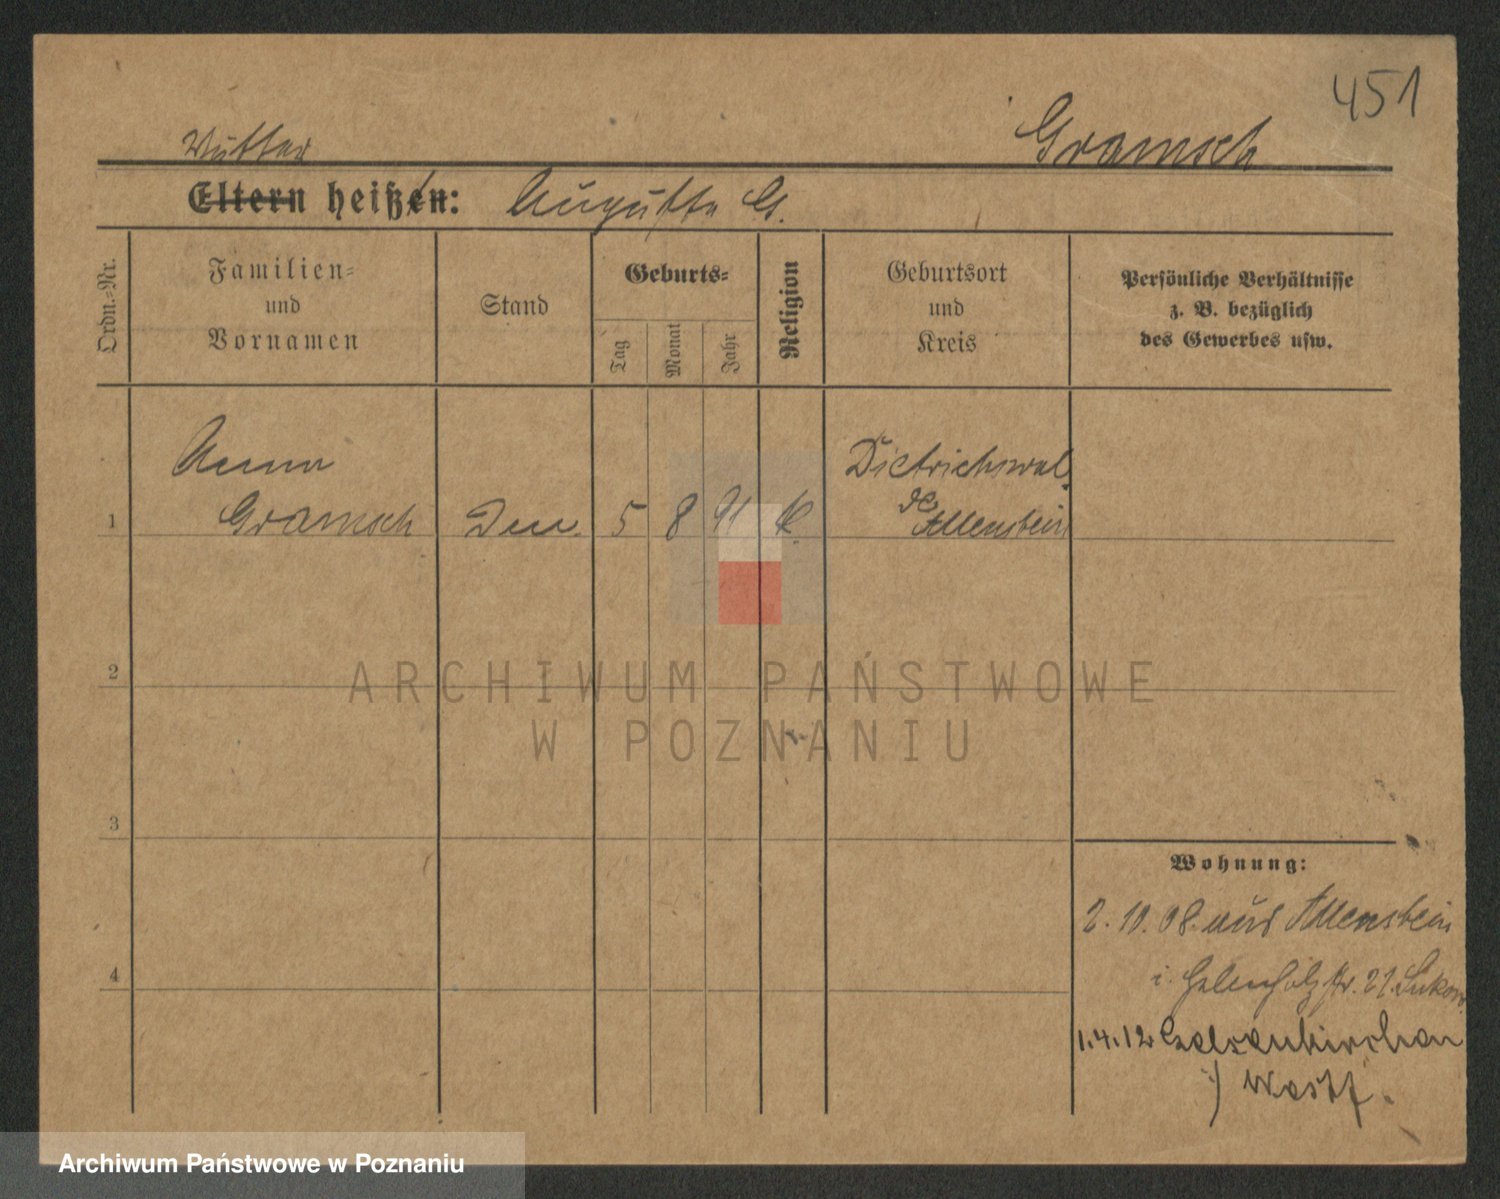 451
Mutter
Gramsch
Eltern heißen: Auguste G.
Ordn.-Nr.
Familien-
und
Vornamen
Stand
Geburts-
Tag
Monat
Jahr
Religion
Geburtsort
und
Kreis
Persönliche Verhältnisse
z. B. bezüglich
des Gewerbes usw.
1
Anna
Gramsch
5
8
91
K.
Dietrichswal-
de
Allenstein
2
3
4
Wohnung:
2. 10. 08. aus Allenstein
i. 21.
1.4.12 Gelsenkirchen
i/ Westf.
ARCHIWUM PAŃSTWOWE
W POZNANIU
Archiwum Państwowe w Poznaniu